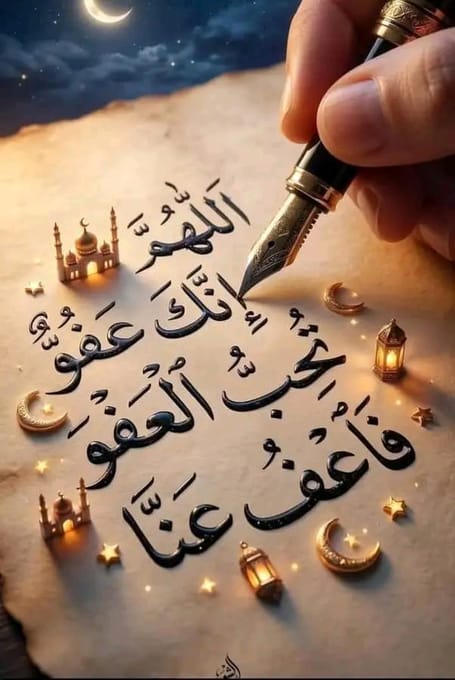 اللَّهُمَّ
إِنَّكَ عَفُوٌّ
تُحِبُّ الْعَفْوَ
فَاعْفُ عَنَّا